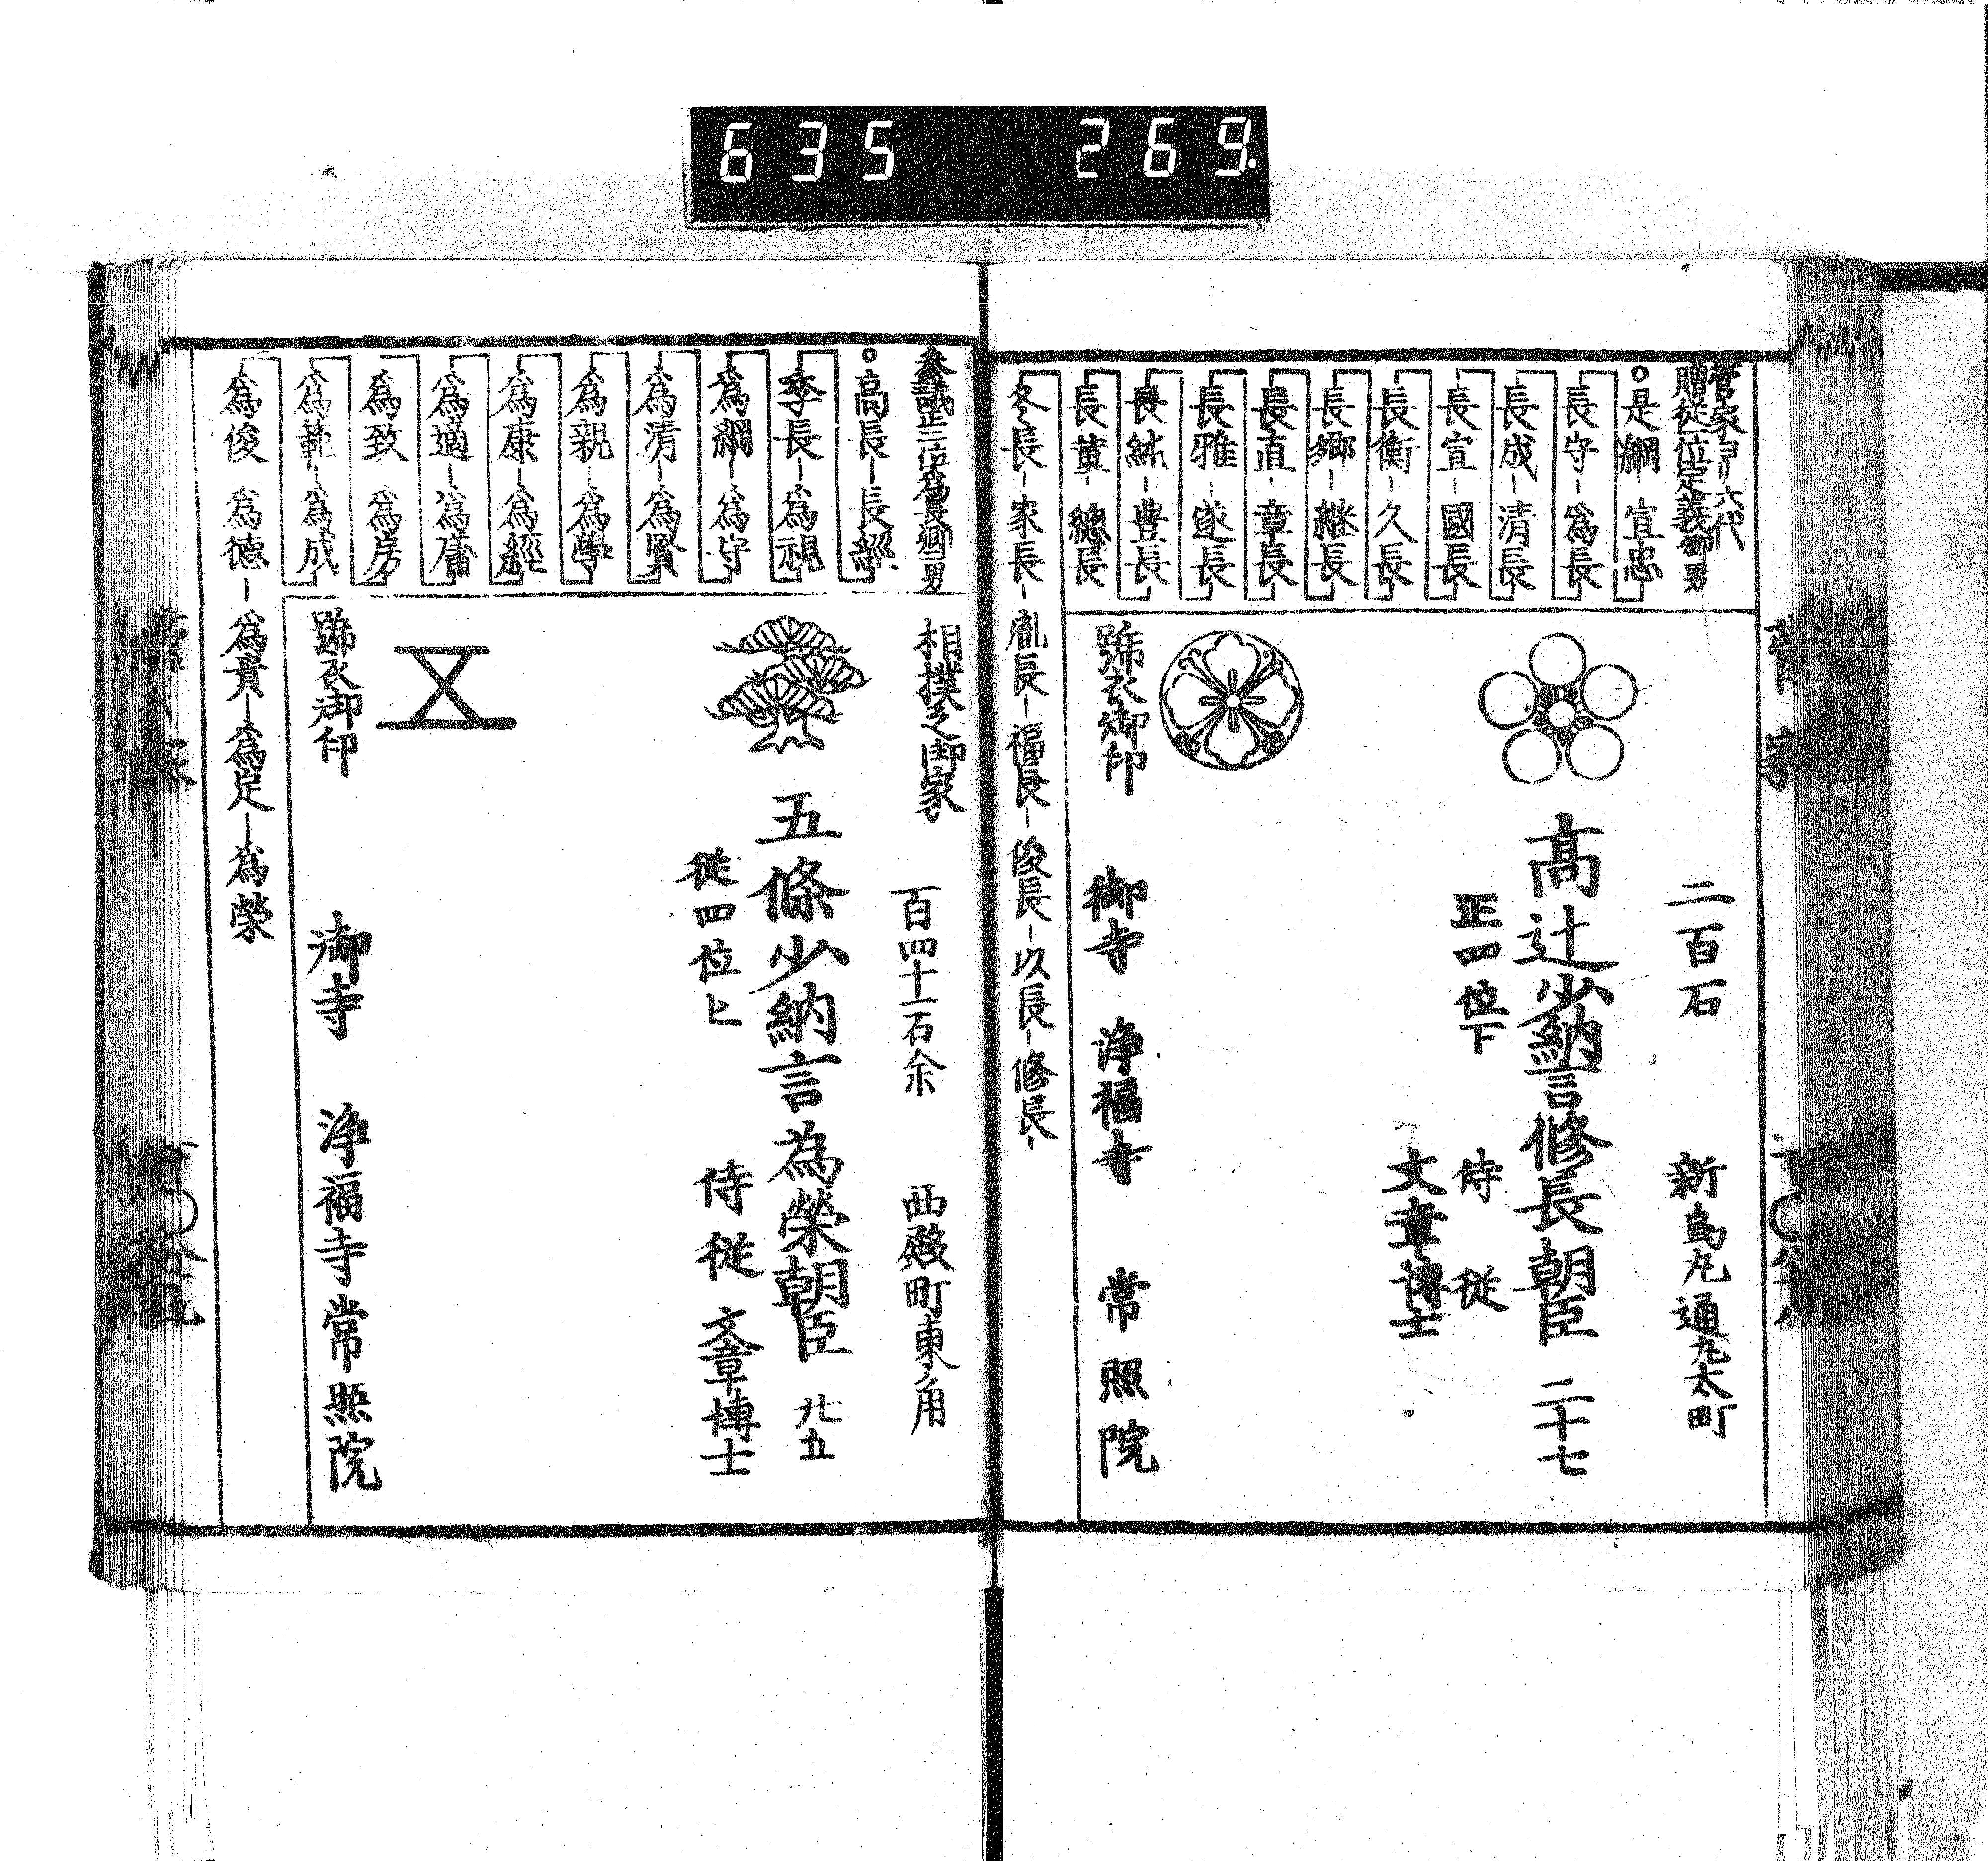 635 269
菅家ヨリ六代
贈従一位定義卿男
是綱 宣忠
長守 為長
長成 清長
長宣 國長
長衡 久長
長郷 継長
長直 章長
長雅 遂長
長純 豊長
長量 總長
冬長 家長 胤長 福長 俊長 以長 修長
二百石 新烏丸通丸太町
高辻少納言修長朝臣 二十七
正四位下 侍従
文章博士
蹄衣御印 御寺 浄福寺 常照院
参議正二位為長卿男
高長 長經
季長 為視
為綱 為守
為清 為賢
為親 為學
為康 為經
為適 為庸
為致 為房
為範 為成
為俊 為徳 為貴 為定 為榮
相撲之御家 百四十一石余 西殿町東角
五條少納言為榮朝臣 廿五
従四位上 侍従 文章博士
蹄衣御印 御寺 浄福寺常照院